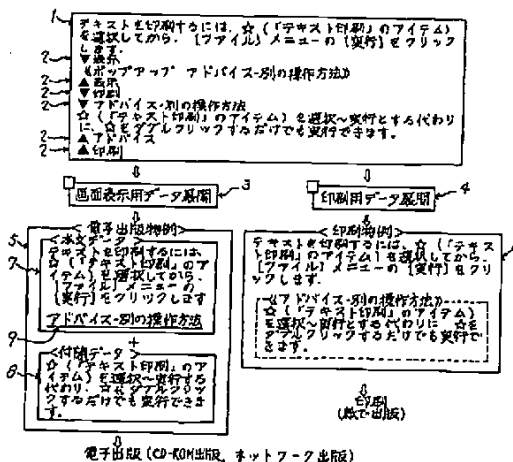 1
テキストを印刷するには、☆(「テキスト印刷」のアイテム)
を選択してから、[ファイル]メニューの[実行]をクリック
します。
2 ▼表示
《ポップアップ アドバイス-別の操作方法》
2 ▲表示
2 ▼印刷
2 ▼アドバイス-別の操作方法
☆(「テキスト印刷」のアイテム)を選択~実行とする代わり
に、☆をダブルクリックするだけでも実行できます。
2 ▲アドバイス
2 ▲印刷
画面表示用データ展開 3
印刷用データ展開 4
5
<電子出版物例>
7
<本文データ>
テキストを印刷するには、
☆(「テキスト印刷」のア
イテム)を選択してから、
[ファイル]メニューの
[実行]をクリックします
アドバイス-別の操作方法
9
+
8
<付随データ>
☆(「テキスト印刷」のア
イテム)を選択~実行する
代わり、☆をダブルクリッ
クするだけでも実行できま
す。
電子出版(CD-ROM出版、ネットワーク出版)
<印刷物例>
テキストを印刷するには、☆(「テキス
ト印刷」のアイテム)を選択してから、
[ファイル]メニューの[実行]をクリッ
クします。
《アドバイス-別の操作方法》
☆(「テキスト印刷」のアイテム)
を選択~実行とする代わりに、☆を
ダブルクリックするだけでも実行で
きます。
印刷
(紙で出版)